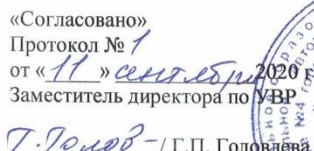 «Согласовано»
Протокол № 1
от «11» сентября 2020 г
Заместитель директора по УВР
/ Г.П. Головлева